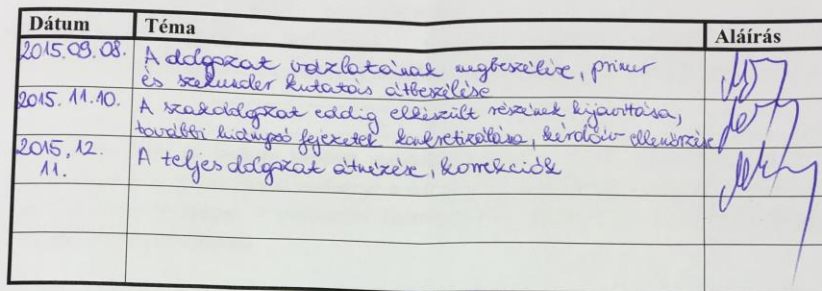 Dátum Téma Aláírás
2015.09.08. A dolgozat vázlatának megbeszélése, primer
és szekunder kutatás átbeszélése
2015.11.10. A szakdolgozat eddig elkészült részeinek kijavítása,
további hiányzó fejezetek konkretizálása, kérdőív ellenőrzése
2015.12. A teljes dolgozat átnézése, korrekciók
11.